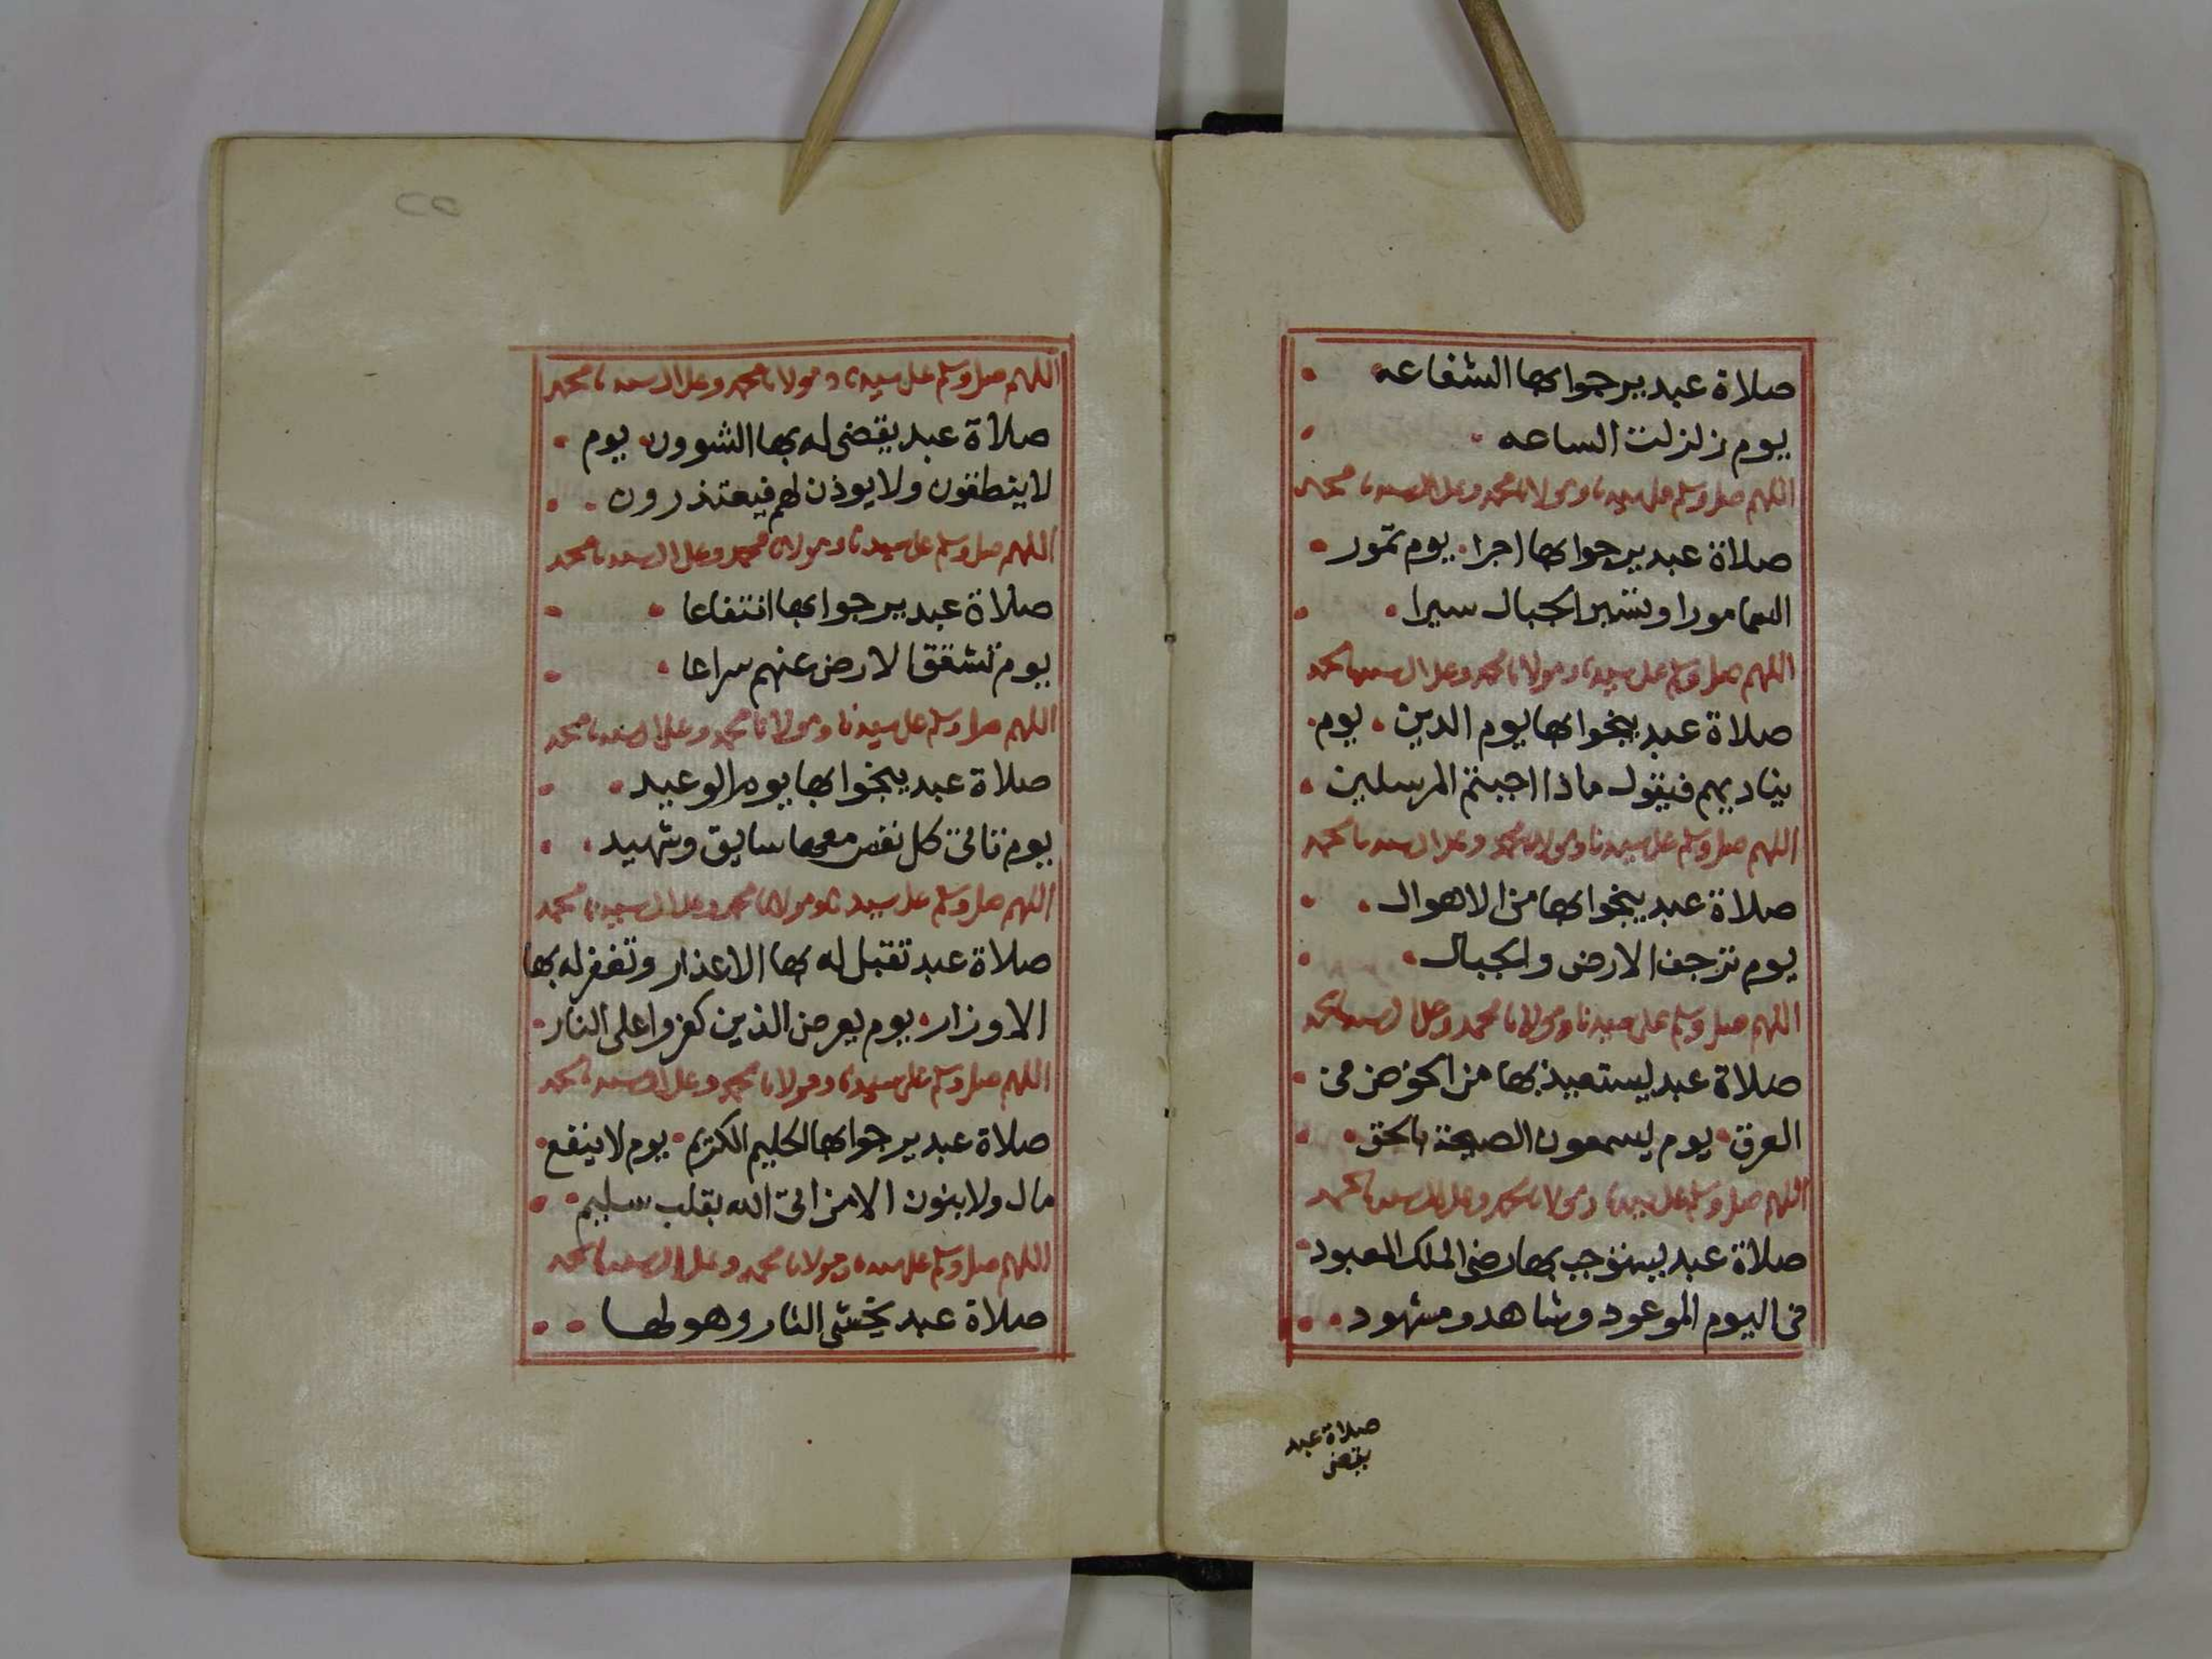 صلاة عبد يرجوا بها الشفاعه
يوم زلزلت الساعه
اللهم صل وسلم على سيدنا ومولانا محمد وعلى ال سيدنا محمد
صلاة عبد يرجوا بها اجرا يوم تمور
السما مورا وتسير الجبال سيرا
اللهم صل وسلم على سيدنا ومولانا محمد وعلى ال سيدنا محمد
صلاة عبد ينجوا بها يوم الدين يوم
يناديهم فيقول ماذا اجبتم المرسلين
اللهم صل وسلم على سيدنا ومولانا محمد وعلى ال سيدنا محمد
صلاة عبد ينجوا بها من الاهوال
يوم ترجف الارض والجبال
اللهم صل وسلم على سيدنا ومولانا محمد وعلى ال سيدنا محمد
صلاة عبد يستعيذ بها من الخوض فى
العرق يوم يسمعون الصيحة بالحق
اللهم صل وسلم على سيدنا ومولانا محمد وعلى ال سيدنا محمد
صلاة عبد يستوجب بها رضى الملك المعبود
فى اليوم الموعود وشاهد ومشهود
صلاة عبد
يقضى
٢٢
اللهم صل وسلم على سيدنا ومولانا محمد وعلى ال سيدنا محمد
صلاة عبد يقضى له بها الشوون يوم
لا ينطقون ولا يوذن لهم فيعتذرون
اللهم صل وسلم على سيدنا ومولانا محمد وعلى ال سيدنا محمد
صلاة عبد يرجوا بها انتفاعا
يوم تشقق الارض عنهم سراعا
اللهم صل وسلم على سيدنا ومولانا محمد وعلى ال سيدنا محمد
صلاة عبد ينجوا بها يوم الوعيد
يوم تاتى كل نفس معها سايق وشهيد
اللهم صل وسلم على سيدنا ومولانا محمد وعلى ال سيدنا محمد
صلاة عبد تقبل له بها الاعذار وتغفر له بها
الاوزار يوم يعرض الذين كفروا على النار
اللهم صل وسلم على سيدنا ومولانا محمد وعلى ال سيدنا محمد
صلاة عبد يرجوا بها الحليم الكريم يوم لا ينفع
مال ولا بنون الا من اتى الله بقلب سليم
اللهم صل وسلم على سيدنا ومولانا محمد وعلى ال سيدنا محمد
صلاة عبد يخشى النار وهولها